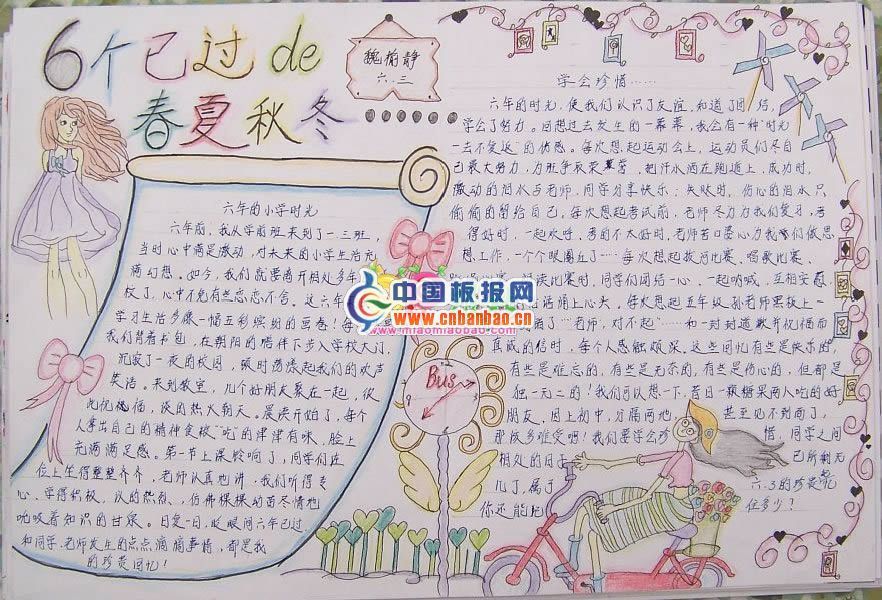 6个已过de
春夏秋冬……
魏楠静
六.三
六年的小学时光
六年前，我从学前班来到了一.三班，
当时心中满是激动，对未来的小学生活充
满幻想。如今，我们就要离开相处多年
校了，心中不免有些恋恋不舍。这六年
学习生活多像一幅五彩缤纷的画卷！每
我们背着书包，在朝阳的陪伴下步入学校大门，
沉寂了一夜的校园，顿时荡漾起我们的欢声
笑语。来到教室，几个好朋友聚在一起，彼
热火朝天。晨读开始了，每个
人拿出自己的精神食粮“吃”的津津有味，脸上
充满满足感。第一节上课铃响了，同学们在
位上坐得整整齐齐，老师认真地讲，我们听得专
心、学得积极，议的热烈，仿佛棵棵幼苗尽情地
吮吸着知识的甘泉。日复一日，眨眼间六年已过
和同学、老师发生的点点滴滴事情，都是我
的珍贵回忆！
学会珍惜……
六年的时光，使我们认识了友谊，知道了团结，
学会了努力。回想过去发生的一幕幕，我会有一种“时光
一去不复返”的伤感。每次想起运动会上，运动员们尽自
己最大努力，为班争取荣誉，把汗水洒在跑道上，成功时，
激动的泪水与老师、同学分享快乐；失败时，伤心的泪水只
偷偷的留给自己。每次想起考试前，老师尽力为我们复习，考
得好时，一起欢呼，考的不太好时，老师苦口婆心为我们做思
想工作，一个个眼圈红了……每次想起拔河比赛、唱歌比赛、
朗读比赛时，同学们团结一心、一起呐喊，互相安慰
涌上心头。每次想起五年级孙老师黑板上一
“老师，对不起” 和一封封道歉并祝福而
真诚的信时，每个人感触颇深。这些回忆有些是快乐的，
有些是难忘的，有些是无奈的，有些是伤心的，但都是
独一无二的！我们可以想一下，昔日一颗糖果两人吃的好
朋友，因上初中，分隔两地， 甚至见不到面了，
那该多难受啊！我们要学会珍 惜，同学之间
相处的日子 已所剩无
几了，属于 六.3的珍贵忆
你还能记 住多少？
Bus
中国板报网
www.cnbanbao.cn
www.miaomiaobao.com